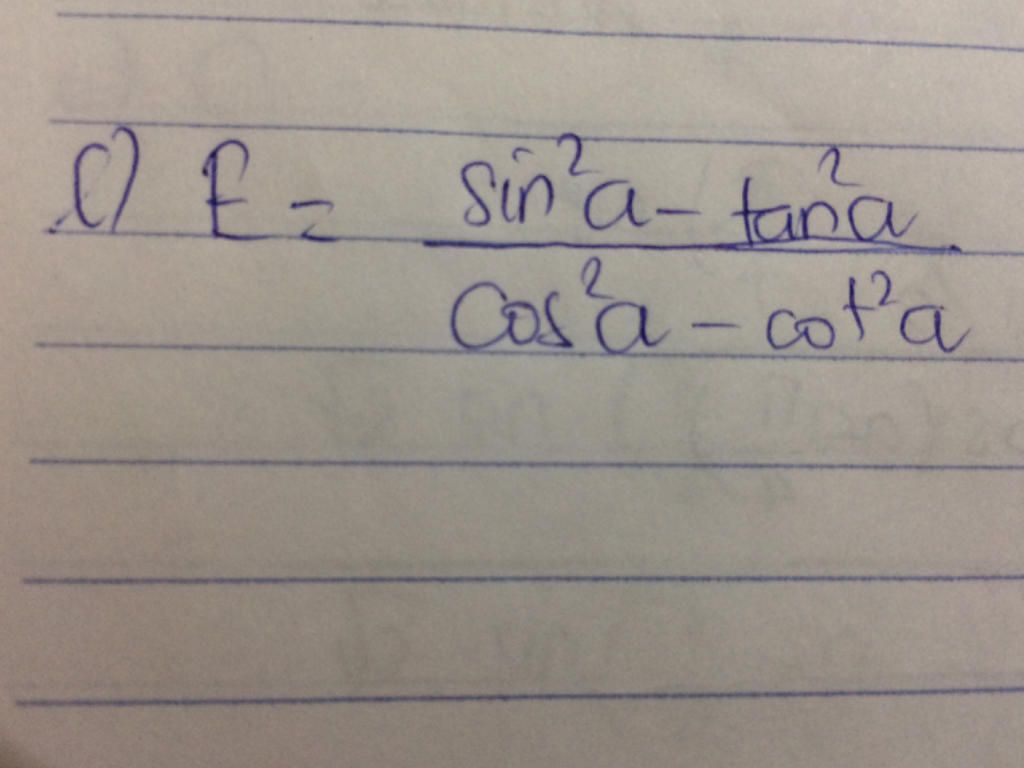 c) E = sin²a - tan²a
cos²a - cot²a